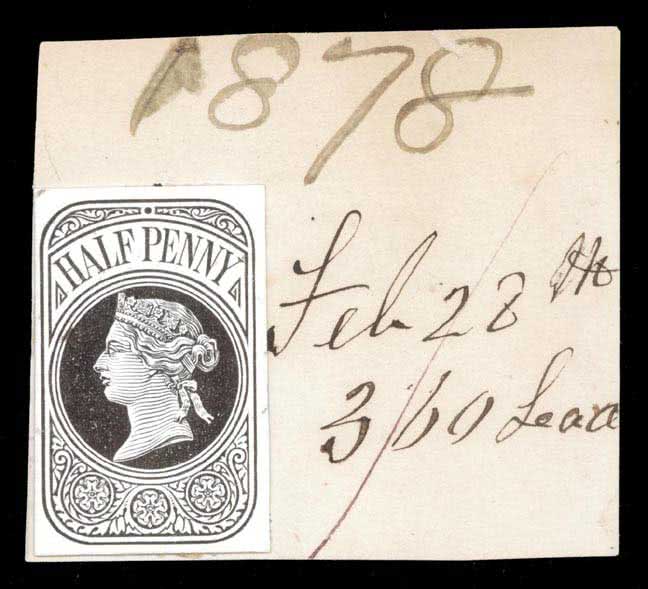 1878
HALF PENNY
Feb 28th
3/60